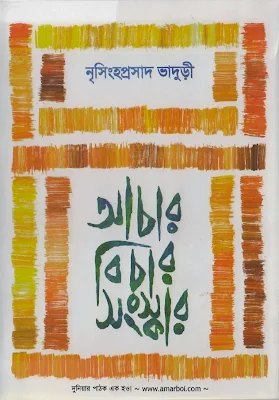 নৃসিংহপ্রসাদ ভাদুড়ী
আচার
বিচার
সংস্কার
দুনিয়ার পাঠক এক হও! ~ www.amarboi.com ~